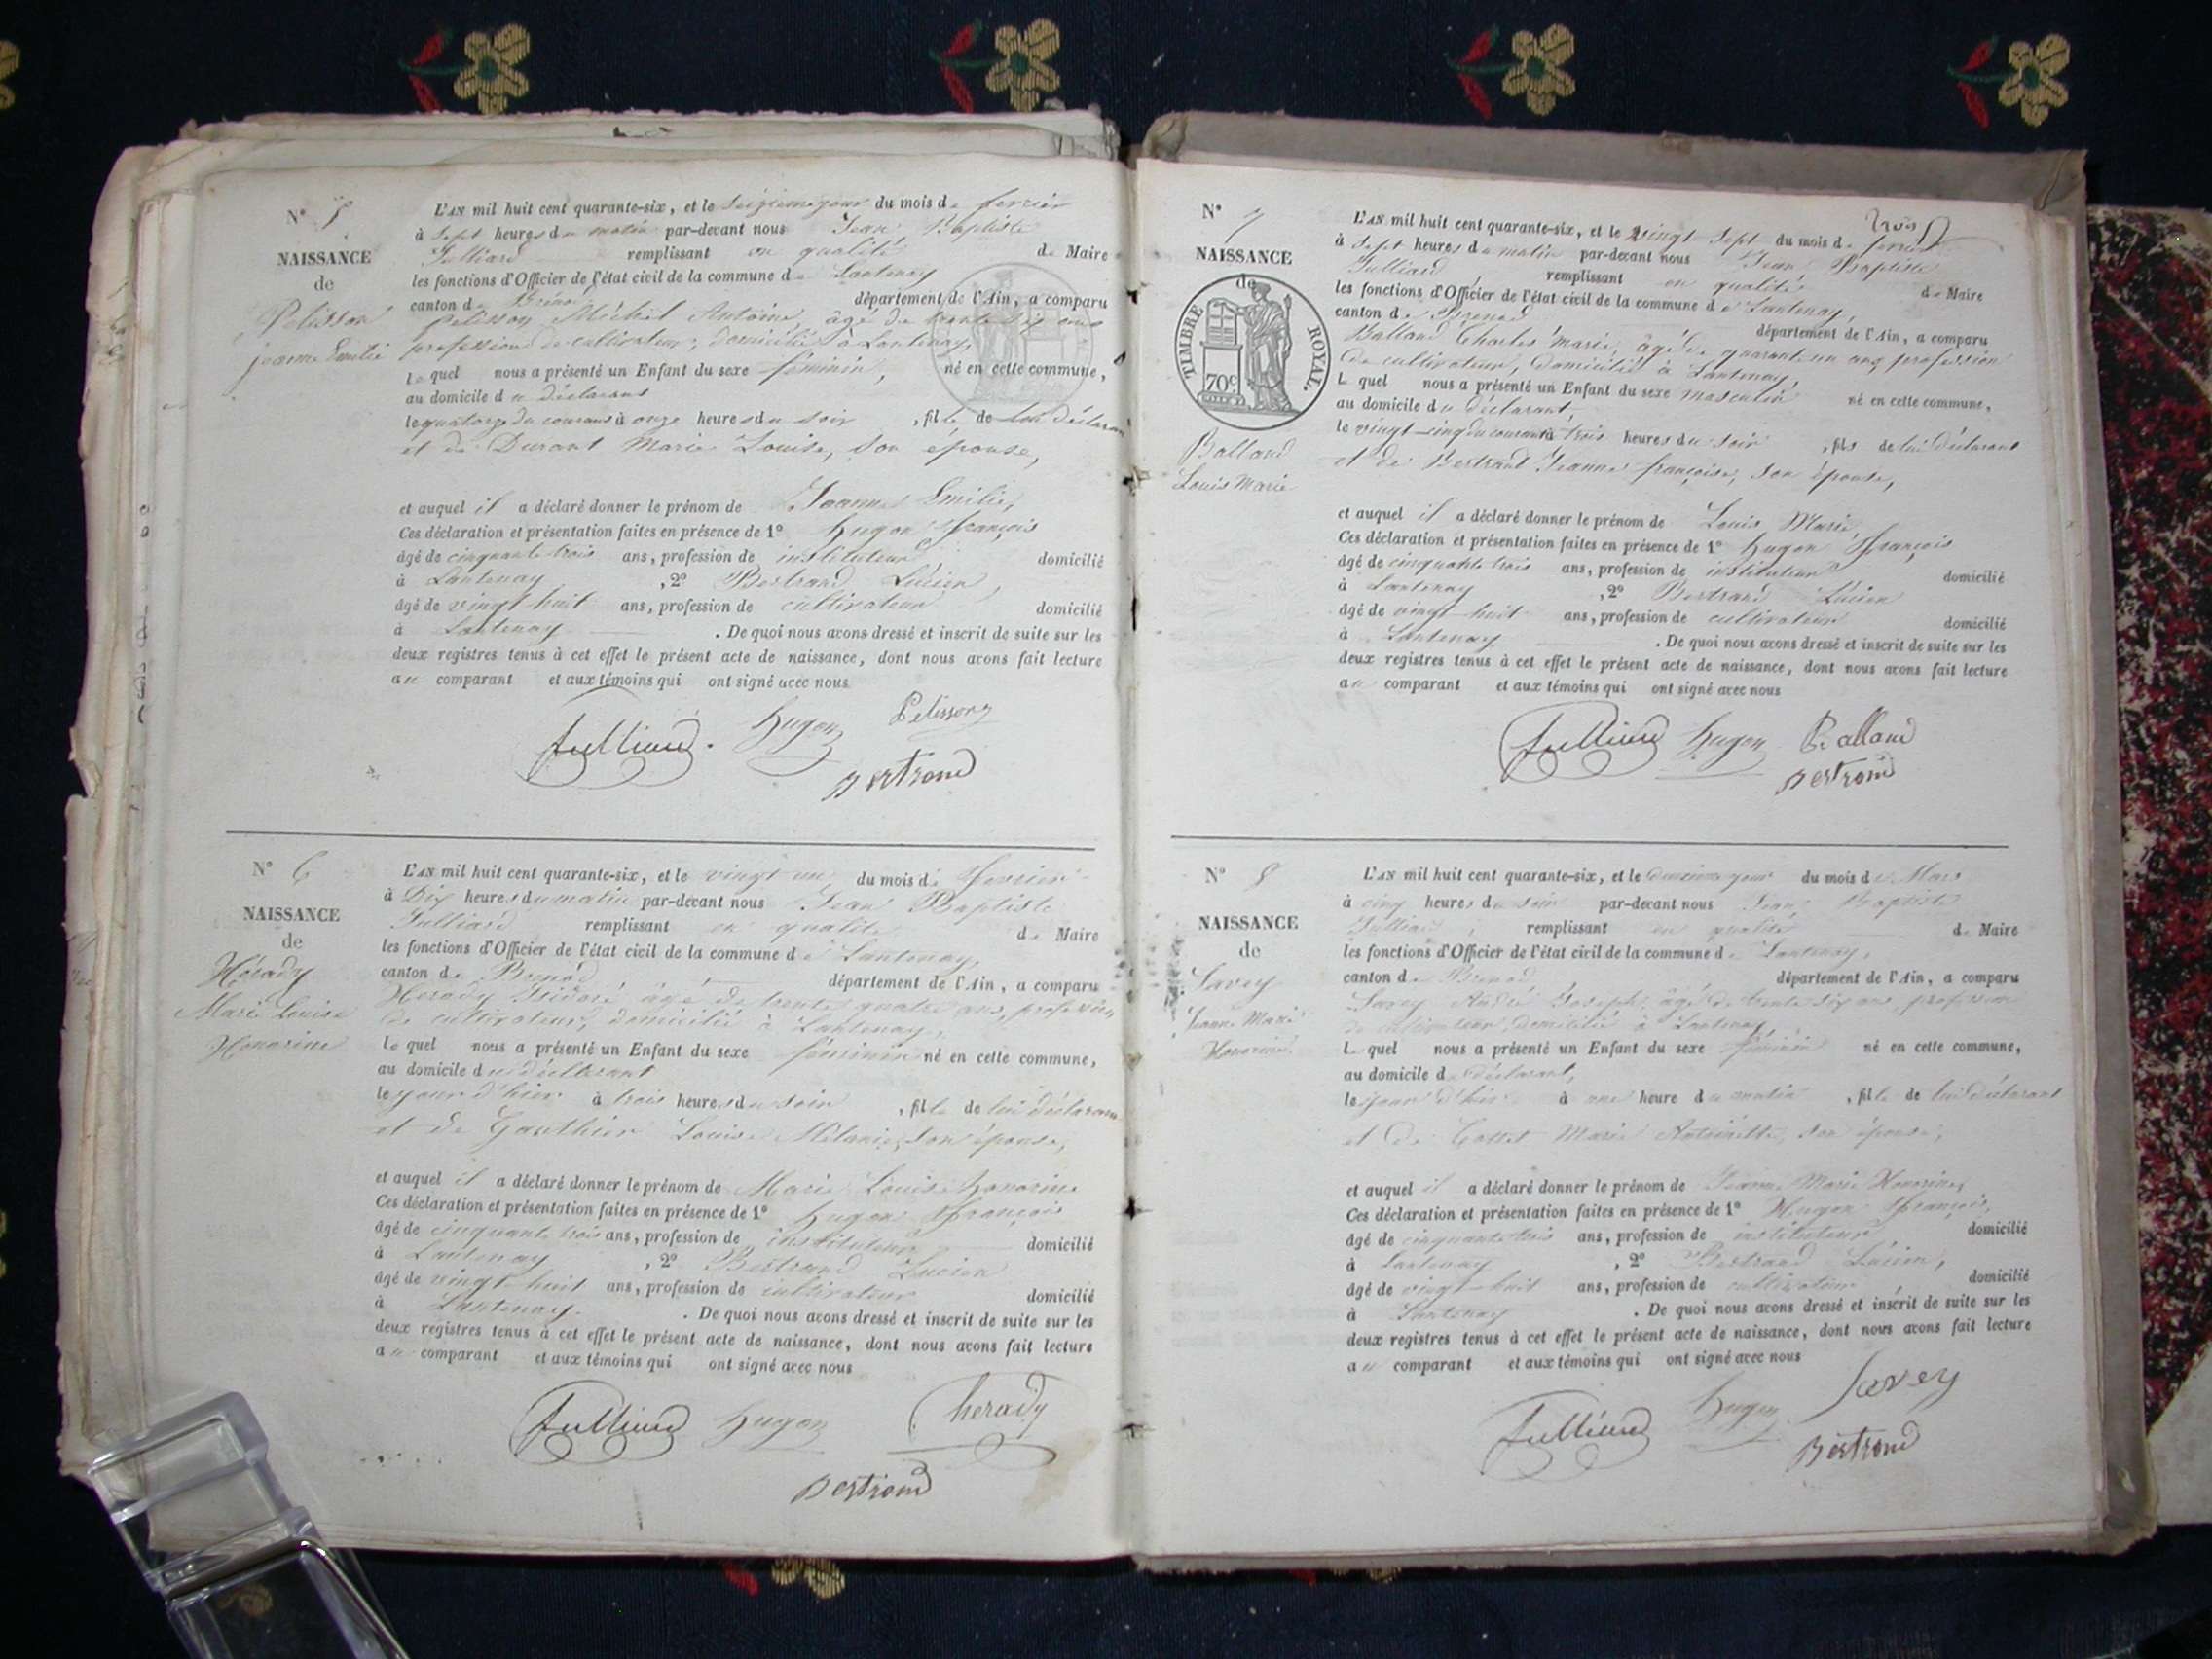 N° 5
NAISSANCE
de
Pelisson
Jeanne Emilie
L'AN mil huit cent quarante-six, et le seizieme jour du mois de fevrier
à sept heures du matin par-devant nous Jean Baptiste
Julliard remplissant en qualité de Maire
les fonctions d'Officier de l'état civil de la commune de Lantenay
canton de Brénod département de l'Ain, a comparu
Pelisson Michel Antoine, âgé de trente six ans
profession de cultivateur, domicilié à Lantenay,
Lequel nous a présenté un Enfant du sexe féminin, né en cette commune,
au domicile du déclarant
le quatorze du courant à onze heures du soir, fille de lui déclarant
et de Durant Marie Louise, son épouse,
et auquel il a déclaré donner le prénom de Jeanne Emilie,
Ces déclaration et présentation faites en présence de 1° Hugon François
âgé de cinquante-trois ans, profession de instituteur domicilié
à Lantenay, 2° Bertrand Lucien,
âgé de vingt huit ans, profession de cultivateur domicilié
à Lantenay. De quoi nous avons dressé et inscrit de suite sur les
deux registres tenus à cet effet le présent acte de naissance, dont nous avons fait lecture
au comparant et aux témoins qui ont signé avec nous
Julliard. Hugon Pelisson
Bertrand
N° 6
NAISSANCE
de
Hérady
Marie Louise
Honorine
L'AN mil huit cent quarante-six, et le vingt un du mois de fevrier
à Dix heures du matin par-devant nous Jean Baptiste
Julliard remplissant en qualité de Maire
les fonctions d'Officier de l'état civil de la commune de Lantenay,
canton de Brenod département de l'Ain, a comparu
Herady Isidore âgé de trente quatre ans, profession
de cultivateur, domicilié à Lantenay,
Lequel nous a présenté un Enfant du sexe féminin né en cette commune,
au domicile du déclarant
le jour d'hier à trois heures du soir, fille de lui déclarant
et de Gauthier Louise Mélanie, son épouse,
et auquel il a déclaré donner le prénom de Marie Louise honorine
Ces déclaration et présentation faites en présence de 1° hugon françois
âgé de cinquante trois ans, profession de instituteur domicilié
à Lantenay, 2° Bertrand Lucien
âgé de vingt huit ans, profession de cultivateur domicilié
à Lantenay. De quoi nous avons dressé et inscrit de suite sur les
deux registres tenus à cet effet le présent acte de naissance, dont nous avons fait lecture
au comparant et aux témoins qui ont signé avec nous
Julliard hugon herady
Bertrand
N° 7
NAISSANCE
de
TIMBRE ROYAL
70c
Balland
Louis Marie
L'AN mil huit cent quarante-six, et le vingt sept du mois de fevrier
à sept heures du matin par-devant nous Jean Baptiste
Julliard remplissant en qualité de Maire
les fonctions d'Officier de l'état civil de la commune de Lantenay,
canton de Brenod département de l'Ain, a comparu
Balland Charles Marie, âgé de quarante un ans profession
de cultivateur, domicilié à Lantenay,
Lequel nous a présenté un Enfant du sexe masculin né en cette commune,
au domicile du déclarant,
le vingt-cinq du courant à trois heures du soir, fils de lui déclarant
et de Bertrand Jeanne françoise, son épouse,
et auquel il a déclaré donner le prénom de Louis Marie,
Ces déclaration et présentation faites en présence de 1° hugon françois
âgé de cinquante trois ans, profession de instituteur domicilié
à Lantenay, 2° Bertrand Lucien
âgé de vingt-huit ans, profession de cultivateur domicilié
à Lantenay. De quoi nous avons dressé et inscrit de suite sur les
deux registres tenus à cet effet le présent acte de naissance, dont nous avons fait lecture
au comparant et aux témoins qui ont signé avec nous
Julliard hugon Balland
Bertrand
N° 8
NAISSANCE
de
Savey
Jeanne Marie
Honorine
L'AN mil huit cent quarante-six, et le deuxieme jour du mois de Mars
à cinq heures du soir par-devant nous Jean Baptiste
Julliard, remplissant en qualité de Maire
les fonctions d'Officier de l'état civil de la commune de Lantenay,
canton de Brenod département de l'Ain, a comparu
Savey André Joseph, âgé de trente six ans, profession
de cultivateur, domicilié à Lantenay,
Lequel nous a présenté un Enfant du sexe féminin né en cette commune,
au domicile du déclarant,
le jour d'hier à une heure du matin, fille de lui déclarant
et de Cottet Marie Antoinette, son épouse,
et auquel il a déclaré donner le prénom de Jeanne Marie Honorine,
Ces déclaration et présentation faites en présence de 1° Hugon François,
âgé de cinquante trois ans, profession de instituteur domicilié
à Lantenay, 2° Bertrand Lucien,
âgé de vingt-huit ans, profession de cultivateur, domicilié
à Lantenay. De quoi nous avons dressé et inscrit de suite sur les
deux registres tenus à cet effet le présent acte de naissance, dont nous avons fait lecture
au comparant et aux témoins qui ont signé avec nous
Julliard hugon Savey
Bertrand